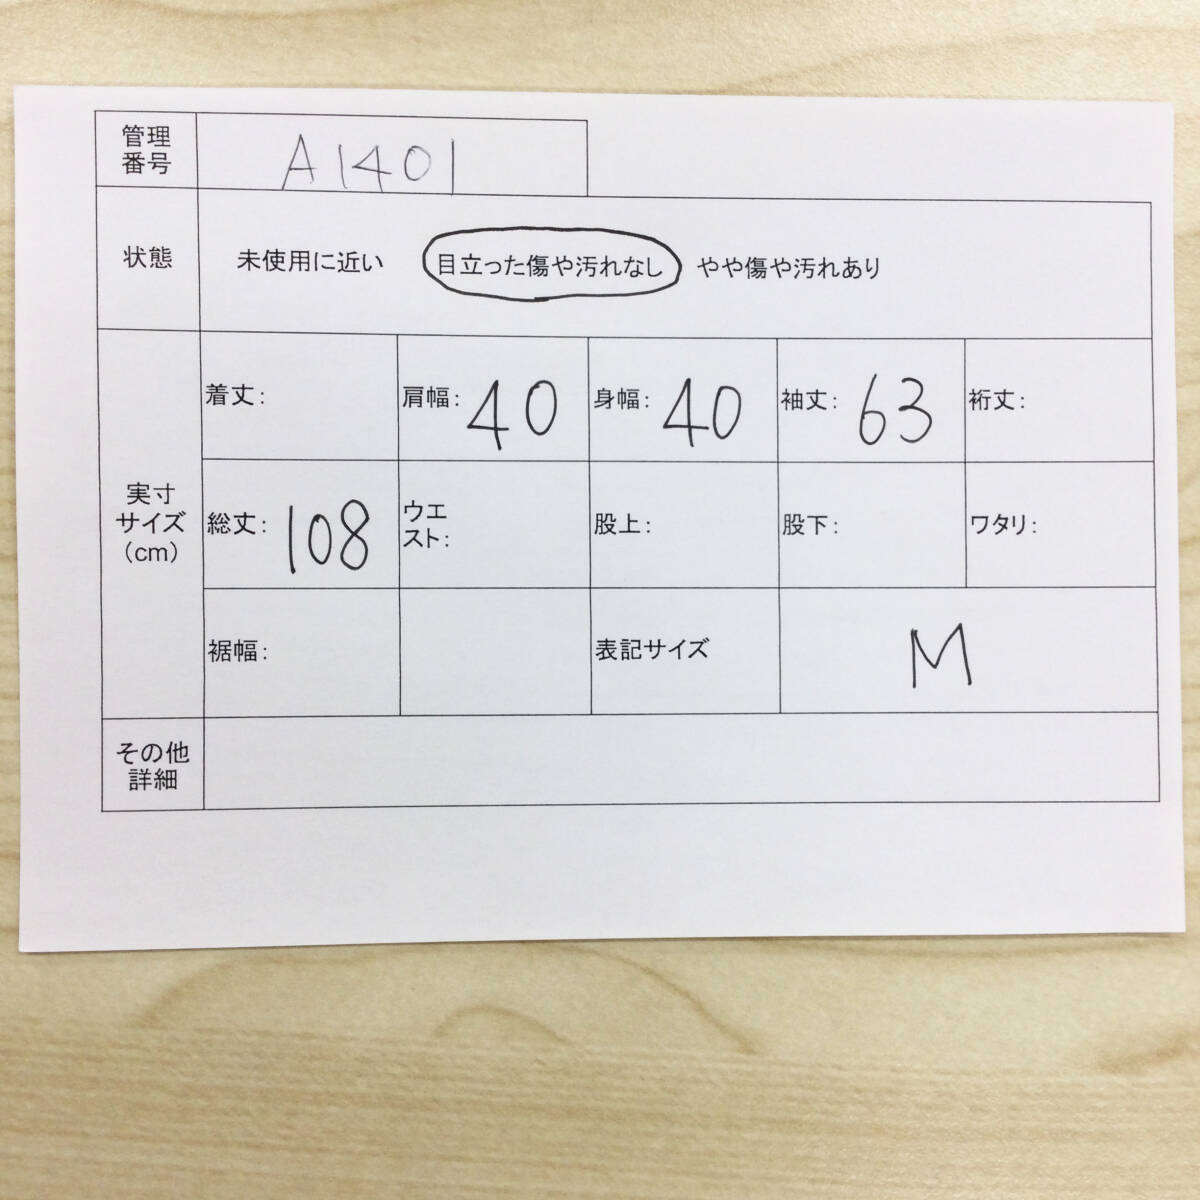 管理
番号
A1401
状態
未使用に近い 目立った傷や汚れなし やや傷や汚れあり
実寸
サイズ
（cm）
着丈: 肩幅: 40 身幅: 40 袖丈: 63 裄丈:
総丈: 108 ウエ
スト: 股上: 股下: ワタリ:
裾幅: 表記サイズ M
その他
詳細